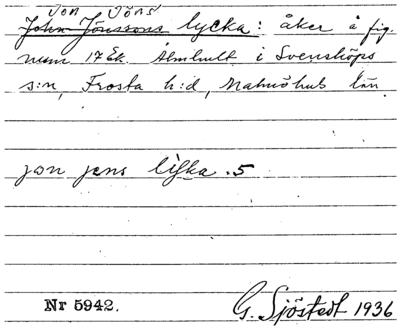 Jon Jöns
John Jönssons lycka: åker å fig.
num 17 Ek. Älmhult i Svensköps
s:n, Frosta h:d, Malmöhus län
jon jens lÿka .5
Nr 5942. G. Sjöstedt 1936